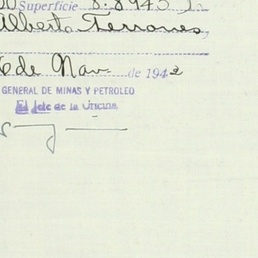 Superficie 8.8945
Alberto Terrones
6 de Nov. de 1942
GENERAL DE MINAS Y PETROLEO
El Jefe de la Oficina